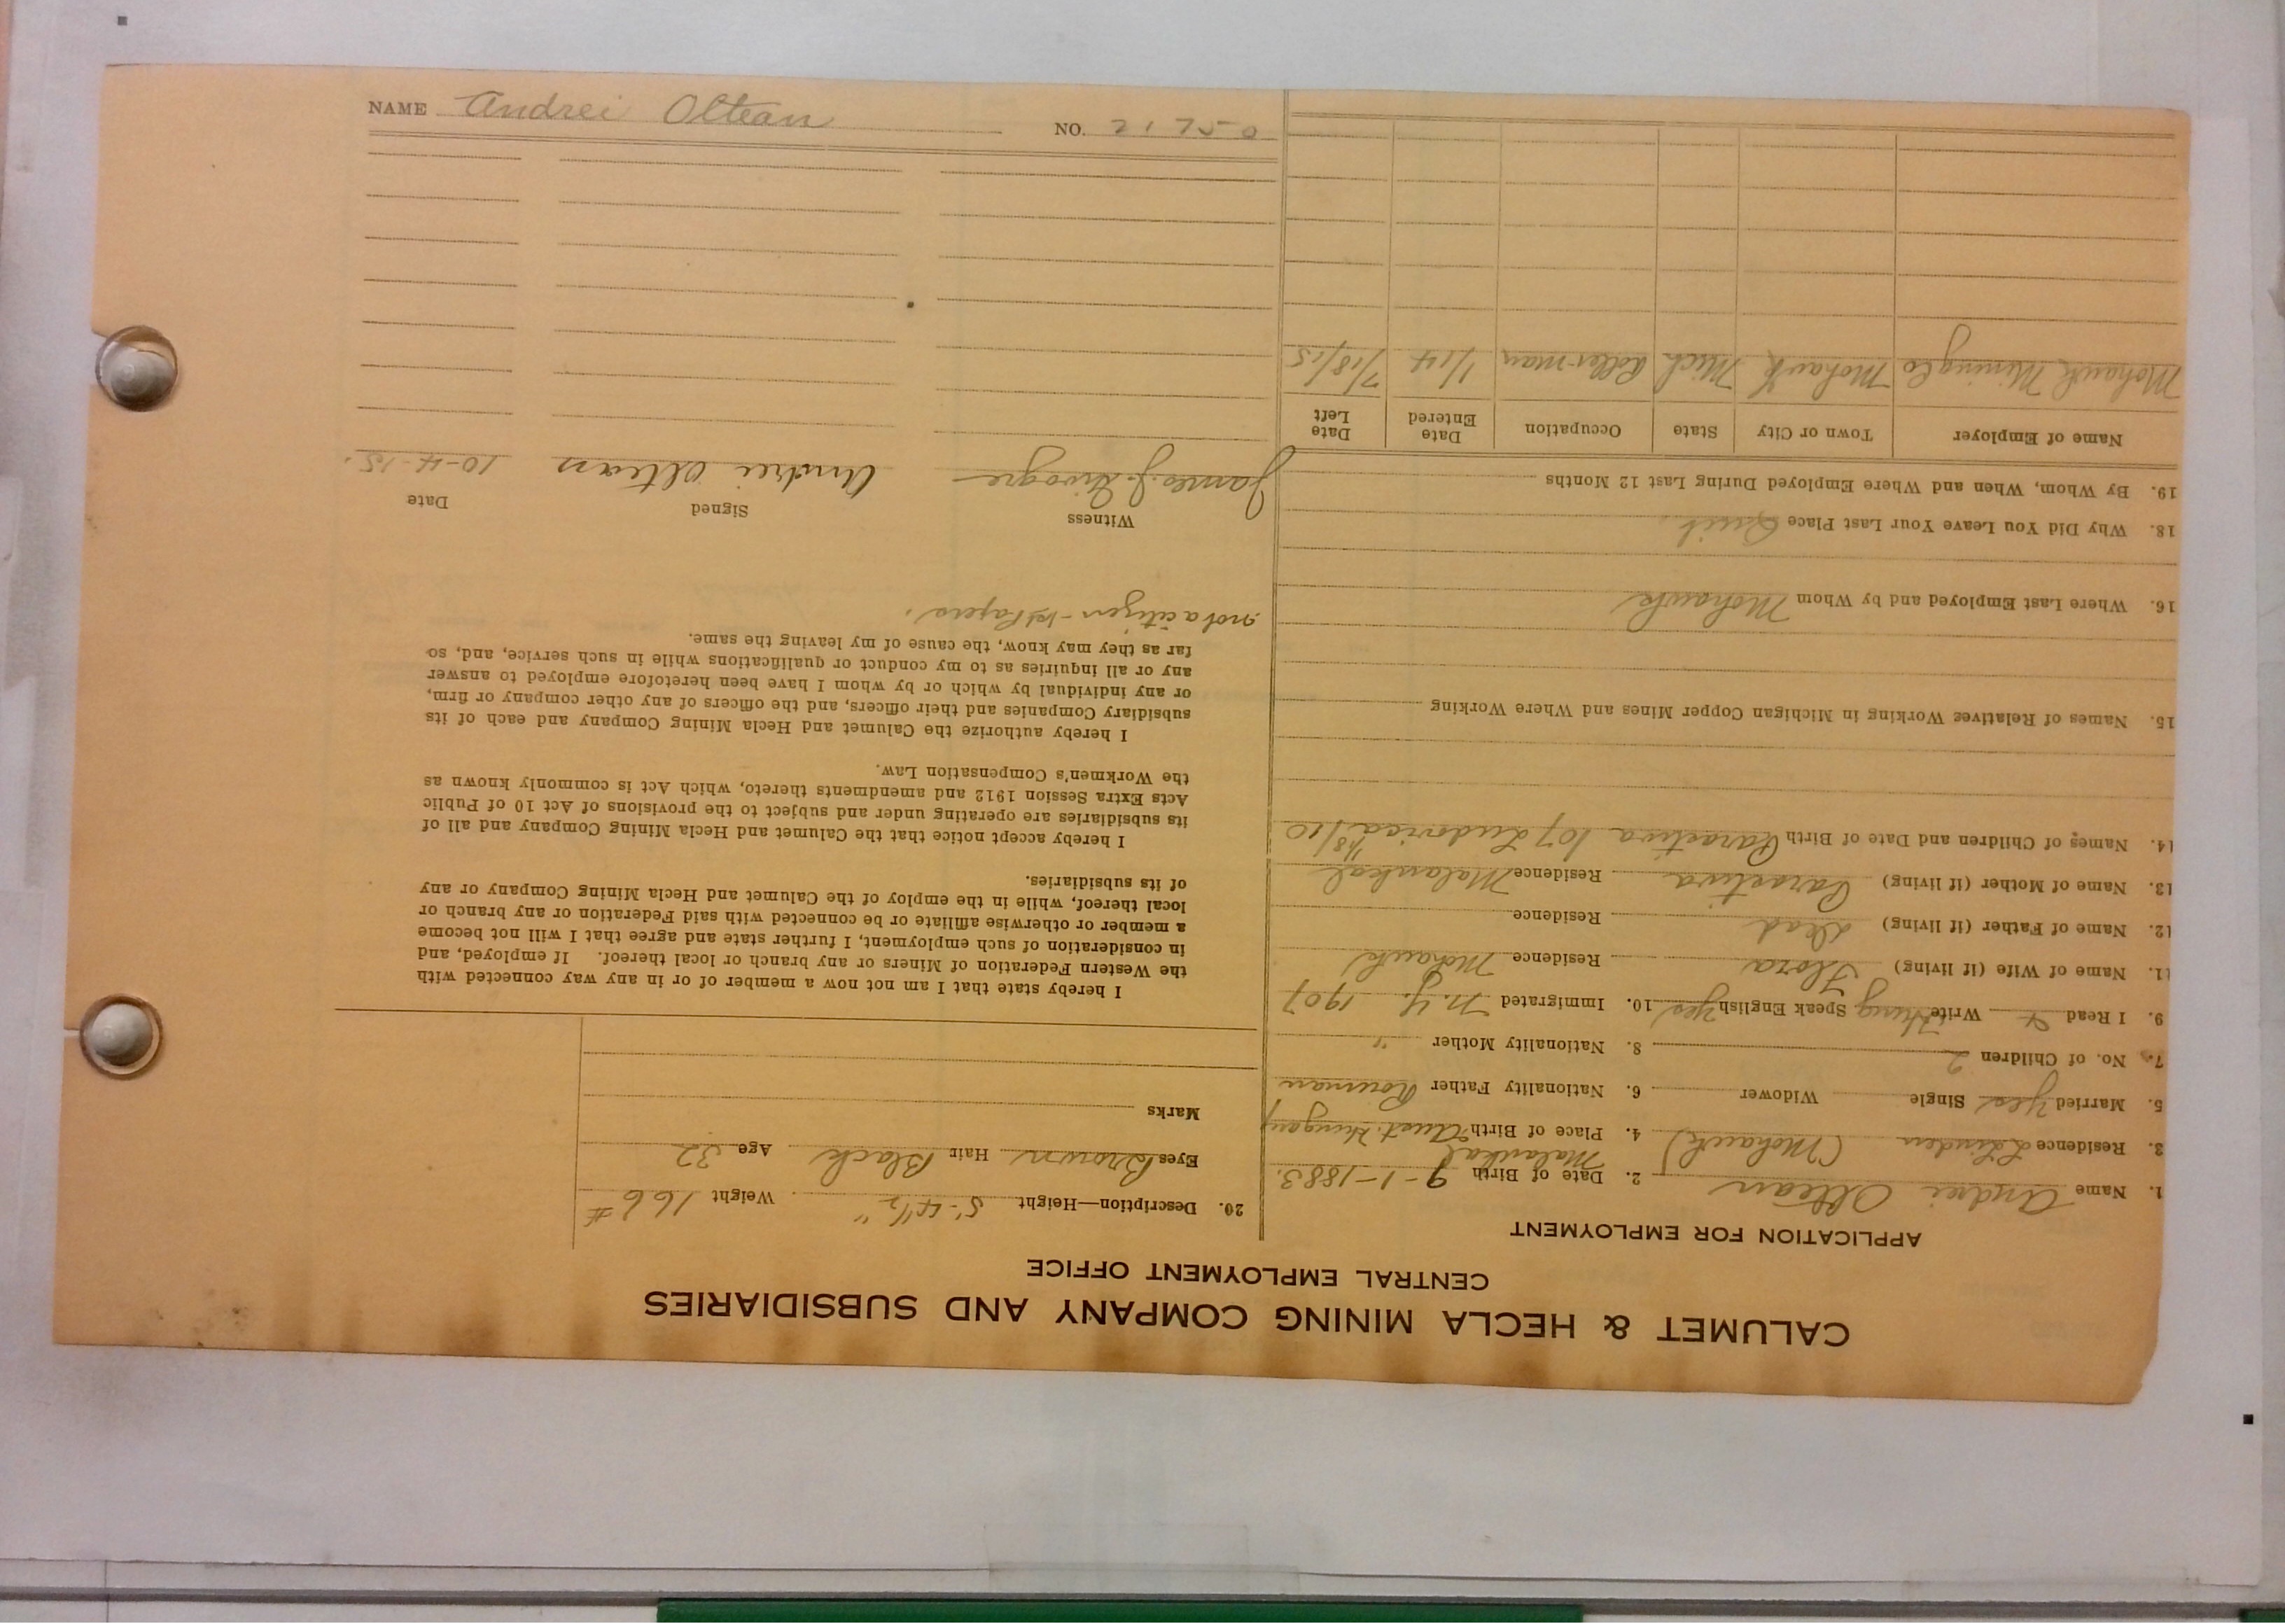 CALUMET & HECLA MINING COMPANY AND SUBSIDIARIES
CENTRAL EMPLOYMENT OFFICE
APPLICATION FOR EMPLOYMENT
1. Name Andrei Oltean 2. Date of Birth 9-1-1883.
3. Residence Linden (Mohawk) 4. Place of Birth Aust. Hungary
5. Married yes Single Widower 6. Nationality Father Rouman
7. No. of Children 2 8. Nationality Mother "
9. I Read & Write Hung Speak English yes 10. Immigrated N.Y. 1907
11. Name of Wife (if living) Flora Residence Mohawk
12. Name of Father (if living) Dead Residence
13. Name of Mother (if living) Residence
14. Names of Children and Date of Birth 107 Ludovica 1/8/10
15. Names of Relatives Working in Michigan Copper Mines and Where Working
16. Where Last Employed and by Whom Mohawk
18. Why Did You Leave Your Last Place Quit.
19. By Whom, When and Where Employed During Last 12 Months
Name of Employer Town or City State Occupation Date Entered Date Left
Mohawk Mining Co Mohawk Mich 1/14 7/18/15
20. Description—Height 5'-4½" Weight 166#
Eyes Brown Hair Black Age 32
Marks
I hereby state that I am not now a member of or in any way connected with
the Western Federation of Miners or any branch or local thereof. If employed, and
in consideration of such employment, I further state and agree that I will not become
a member or otherwise affiliate or be connected with said Federation or any branch or
local thereof, while in the employ of the Calumet and Hecla Mining Company or any
of its subsidiaries.
I hereby accept notice that the Calumet and Hecla Mining Company and all of
its subsidiaries are operating under and subject to the provisions of Act 10 of Public
Acts Extra Session 1912 and amendments thereto, which Act is commonly known as
the Workmen's Compensation Law.
I hereby authorize the Calumet and Hecla Mining Company and each of its
subsidiary Companies and their officers, and the officers of any other company or firm,
or any individual by which or by whom I have been heretofore employed to answer
any or all inquiries as to my conduct or qualifications while in such service, and, so
far as they may know, the cause of my leaving the same.
not a citizen - 1st Papers.
Witness Signed Date
James J. Andrei Oltean 10-4-15.
NAME Andrei Oltean NO. 21750